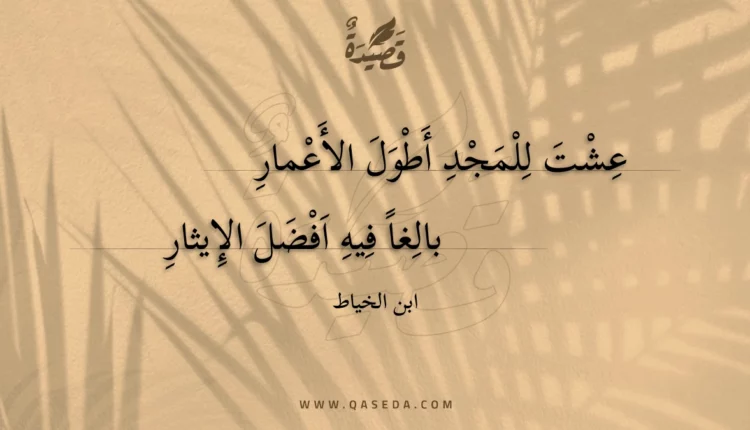 قَصِيْدَةٌ
عِشْتَ لِلْمَجْدِ أَطْوَلَ الأَعْمارِ
بالِغاً فِيهِ اَفْضَلَ الإِيثارِ
ابن الخياط
WWW.QASEDA.COM